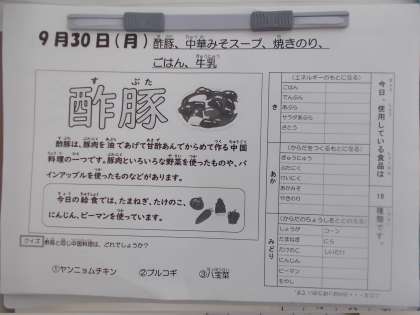 9月30日(月) 酢豚、中華みそスープ、焼きのり、
ごはん、牛乳
すぶた
酢豚
酢豚は、豚肉を油であげて甘酢あんでからめて作る中国
料理の一つです。豚肉といろいろな野菜を使ったものや、パ
インアップルを使ったものなどがあります。
今日の給食では、たまねぎ、たけのこ、
にんじん、ピーマンを使っています。
クイズ 酢豚と同じ中国料理は、どれでしょうか?
①ヤンニョムチキン ②プルコギ ③八宝菜
今日、使用している食品は 18 種類です。
き
(エネルギーのもとになる)
ごはん
でんぷん
あぶら
サラダあぶら
さとう
あか
(からだをつくるもとになる)
ぎゅうにゅう
ぶたにく
けいにく
あかみそ
やきのり
みどり
(からだのちょうしをととのえる)
しょうが コーン
たまねぎ にら
たけのこ しいたけ
にんじん
ピーマン
もやし